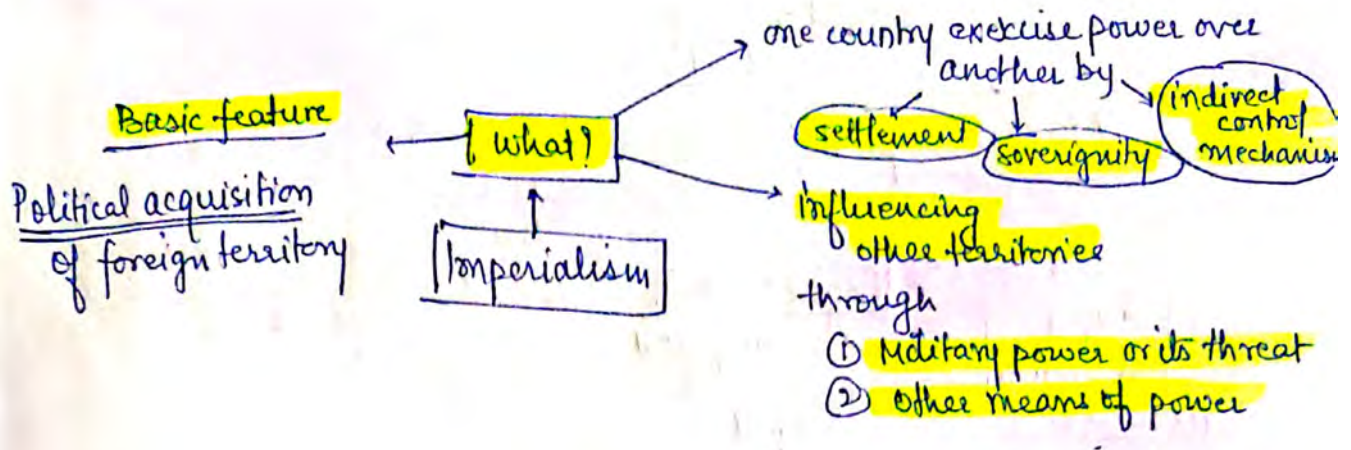 Basic feature
Political acquisition
of foreign territory
What?
Imperialism
one country exercise power over
another by
settlement
soverignity
indirect
control
mechanism
influencing
other territories
through
① Military power or its threat
② other means of power